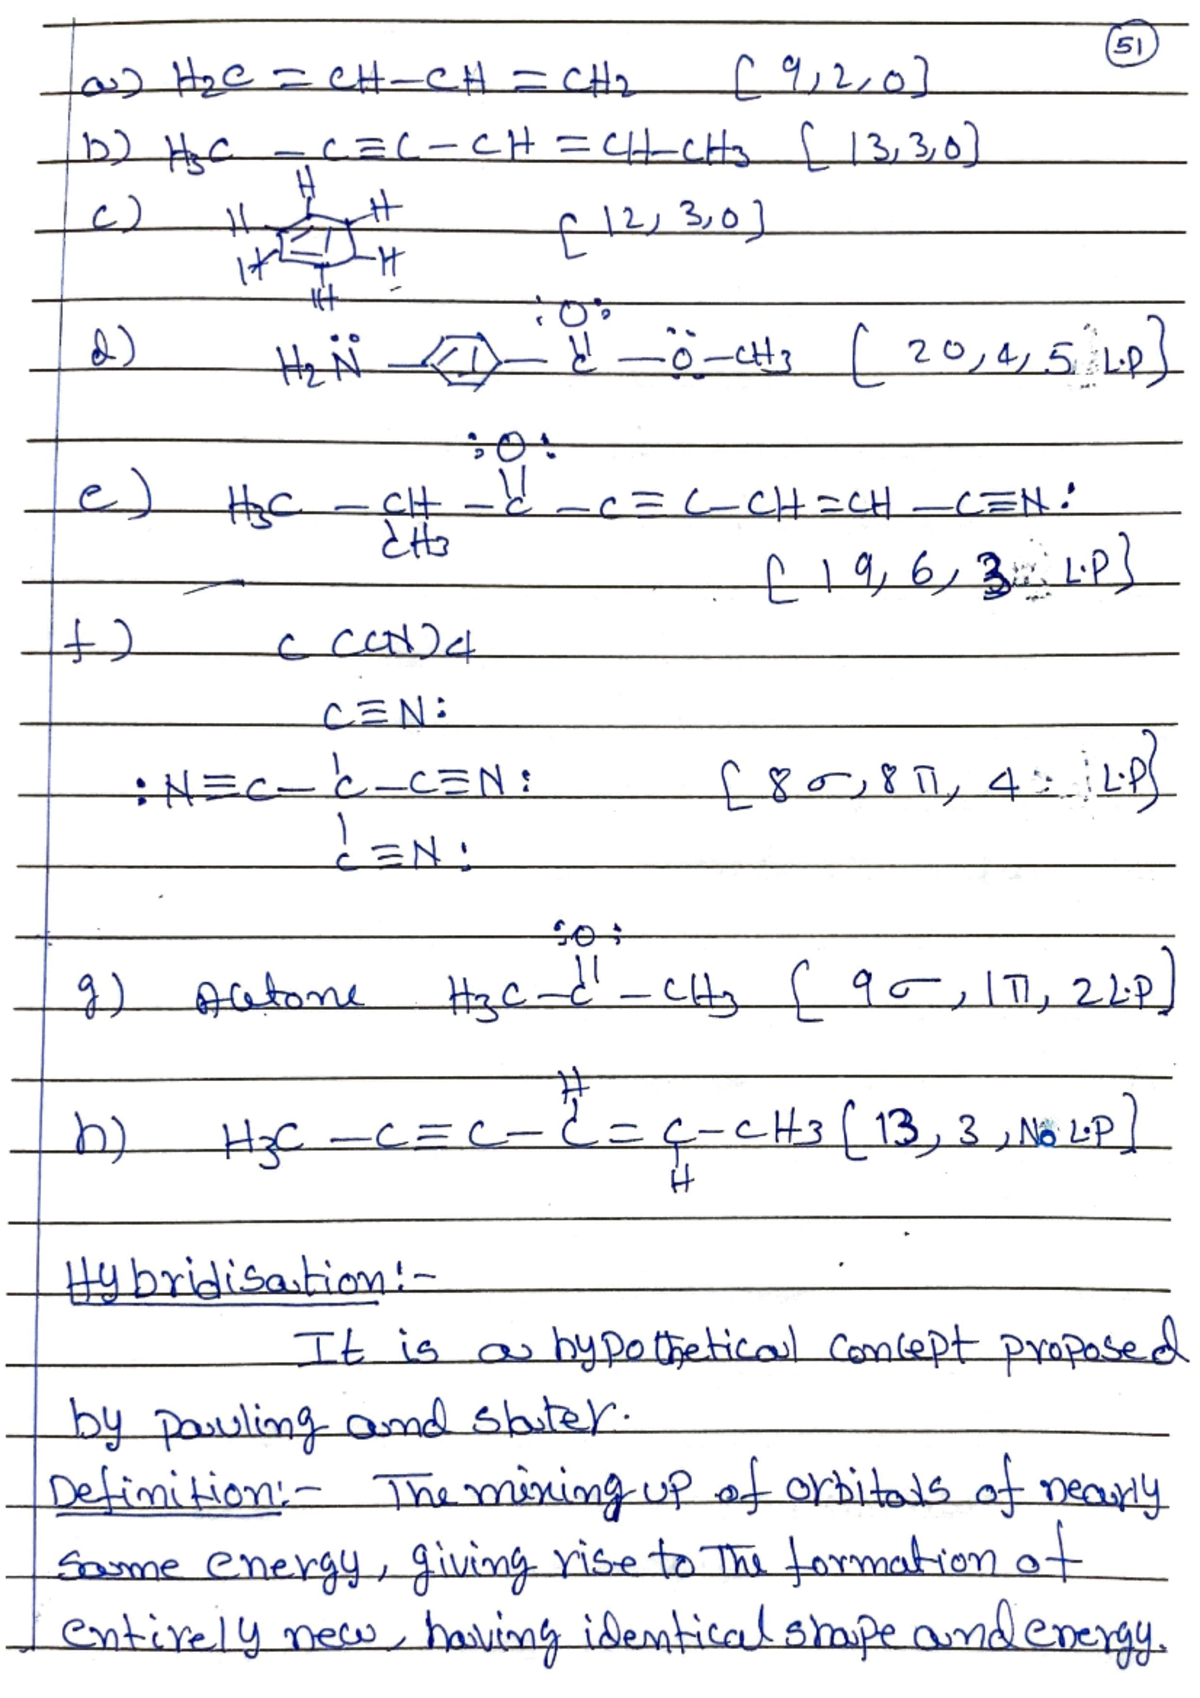 51
a) H2C = CH-CH = CH2 [ 9,2,0]
b) H3C - C≡C - CH = CH-CH3 [ 13,3,0]
H
c) H H [ 12, 3,0]
H H
H
:O:
d) H2N̈ - - C - Ö - CH3 [ 20, 4, 5 L.P]
:O:
e) H3C - CH - C - C ≡ C - CH = CH - C≡N:
CH3
[ 19, 6, 3 L.P]
f) C (CN)4
C≡N:
:N≡C - C - C≡N: [ 8σ, 8π, 4 L.P]
C≡N:
:O:
g) Acetone H3C - C - CH3 [ 9σ, 1π, 2L.P]
H
h) H3C - C ≡ C - C = C - CH3 [ 13, 3, No L.P]
H
Hybridisation:-
It is a hypothetical concept proposed
by pauling and slater.
Definition:- The mixing up of orbitals of nearly
same energy, giving rise to The formation of
entirely new, having identical shape and energy.